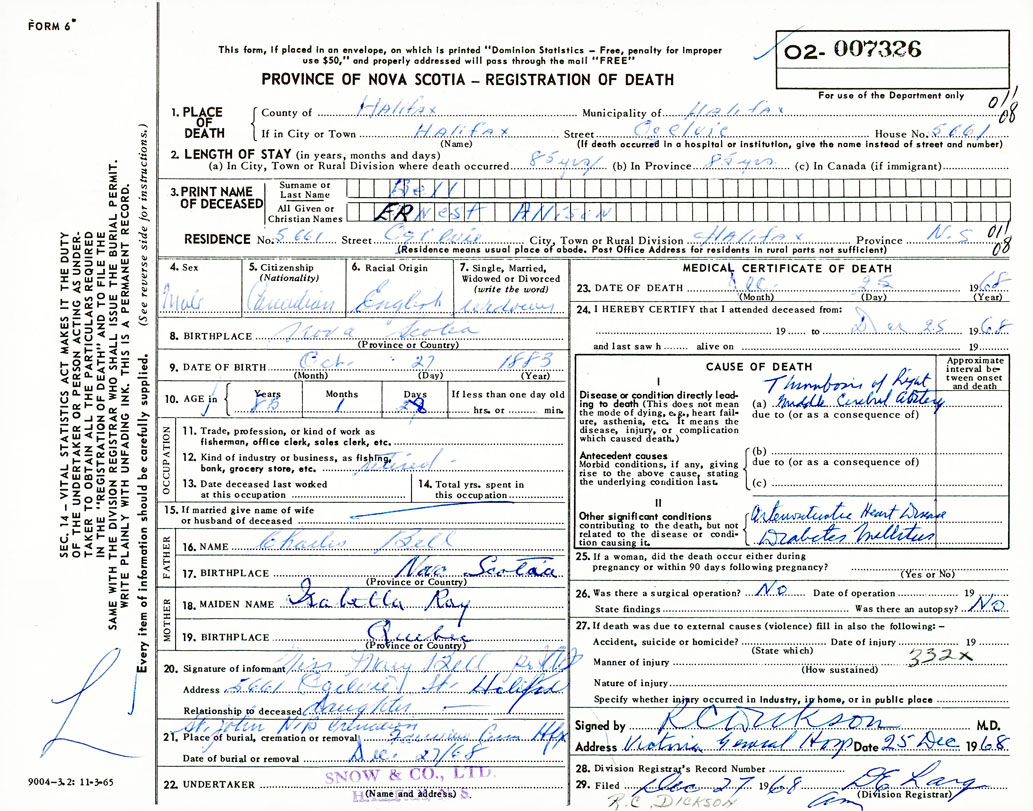 FORM 6"
This form, if placed in an envelope, on which is printed "Dominion Statistics – Free, penalty for improper
use $50," and properly addressed will pass through the mail "FREE"
PROVINCE OF NOVA SCOTIA – REGISTRATION OF DEATH
O2- 007326
For use of the Department only
011
08
1. PLACE OF DEATH
County of Halifax Municipality of Halifax
If in City or Town Halifax Street Ogilvie House No. 5661
(Name) (If death occurred in a hospital or institution, give the name instead of street and number)
2. LENGTH OF STAY (in years, months and days)
(a) In City, Town or Rural Division where death occurred 85 yrs (b) In Province 85 yrs. (c) In Canada (if immigrant)
3. PRINT NAME OF DECEASED
Surname or Last Name Bell
All Given or Christian Names ERNest Alison
RESIDENCE No. 5661 Street Ogilvie City, Town or Rural Division Halifax Province N.S
(Residence means usual place of abode. Post Office Address for residents in rural parts not sufficient)
011
08
4. Sex
Male
5. Citizenship
(Nationality)
Canadian
6. Racial Origin
English
7. Single, Married,
Widowed or Divorced
(write the word)
widower
8. BIRTHPLACE Nova Scotia
(Province or Country)
9. DATE OF BIRTH Oct. 27 1883
(Month) (Day) (Year)
10. AGE in Years Months Days If less than one day old
85 1 28 hrs. or min.
OCCUPATION
11. Trade, profession, or kind of work as
fisherman, office clerk, sales clerk, etc.
12. Kind of industry or business, as fishing,
bank, grocery store, etc. retired
13. Date deceased last worked
at this occupation
14. Total yrs. spent in
this occupation
15. If married give name of wife
or husband of deceased
FATHER
16. NAME Charles Bell
17. BIRTHPLACE Nova Scotia
(Province or Country)
MOTHER
18. MAIDEN NAME Isabella Ray
19. BIRTHPLACE Quebec
(Province or Country)
20. Signature of informant Miss Mary Bell
Address 5661 Ogilvie St. Halifax
Relationship to deceased daughter
St. John N.B
21. Place of burial, cremation or removal Hfx
Date of burial or removal Dec. 27/68
22. UNDERTAKER SNOW & CO., LTD.
(Name and address)
HALIFAX, N.S.
MEDICAL CERTIFICATE OF DEATH
23. DATE OF DEATH Dec. 25 1968
(Month) (Day) (Year)
24. I HEREBY CERTIFY that I attended deceased from:
19 to Dec 25 1968
and last saw h alive on 19
CAUSE OF DEATH
Approximate interval between onset and death
I
Disease or condition directly leading to death (This does not mean the mode of dying, e.g., heart failure, asthenia, etc. It means the disease, injury, or complication which caused death.)
Thrombosis of Right
(a) Middle Cerebral Artery
due to (or as a consequence of)
Antecedent causes
Morbid conditions, if any, giving rise to the above cause, stating the underlying condition last.
(b)
due to (or as a consequence of)
(c)
II
Other significant conditions contributing to the death, but not related to the disease or condition causing it.
Heart Disease
Diabetes Mellitus
25. If a woman, did the death occur either during
pregnancy or within 90 days following pregnancy?
(Yes or No)
26. Was there a surgical operation? NO Date of operation 19
State findings Was there an autopsy? NO
27. If death was due to external causes (violence) fill in also the following: –
Accident, suicide or homicide? Date of injury 19
(State which)
332x
Manner of injury
(How sustained)
Nature of injury
Specify whether injury occurred in Industry, in home, or in public place
Signed by RC Dickson M.D.
Address Victoria General Hosp Date 25 Dec 1968
28. Division Registrar's Record Number
29. Filed Dec 27 1968 DE Lang
(Division Registrar)
R.C. DICKSON
SEC. 14 – VITAL STATISTICS ACT MAKES IT THE DUTY
OF THE UNDERTAKER OR PERSON ACTING AS UNDER-
TAKER TO OBTAIN ALL THE PARTICULARS REQUIRED
IN THE "REGISTRATION OF DEATH" AND TO FILE THE
SAME WITH THE DIVISION REGISTRAR WHO SHALL ISSUE THE BURIAL PERMIT.
WRITE PLAINLY WITH UNFADING INK. THIS IS A PERMANENT RECORD.
Every item of information should be carefully supplied. (See reverse side for instructions.)
9004-3.2: 11-3-65